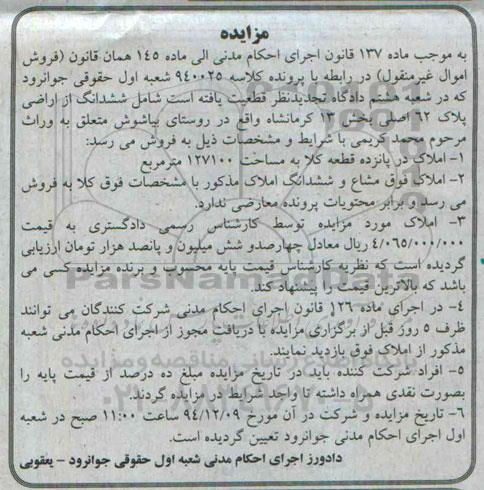 مزایده
به موجب ماده ۱۳۷ قانون اجرای احکام مدنی الی ماده ۱۴۵ همان قانون (فروش
اموال غیرمنقول) در رابطه با پرونده کلاسه ۹۴۰۰۲۵ شعبه اول حقوقی جوانرود
که در شعبه هشتم دادگاه تجدیدنظر قطعیت یافته است شامل ششدانگ از اراضی
پلاک ۶۲ اصلی بخش ۱۳ کرمانشاه واقع در روستای بیاشوش متعلق به وراث
مرحوم محمد کریمی با شرایط و مشخصات ذیل به فروش می رسد:
۱- املاک در پانزده قطعه کلا به مساحت ۱۲۷۱۰۰ مترمربع
۲- املاک فوق مشاع و ششدانگ املاک مذکور با مشخصات فوق کلا به فروش
می رسد و برابر محتویات پرونده معارضی ندارد.
۳- املاک مورد مزایده توسط کارشناس رسمی دادگستری به قیمت
۴/۰۶۵/۰۰۰/۰۰۰ ریال معادل چهارصدو شش میلیون و پانصد هزار تومان ارزیابی
گردیده است که نظریه کارشناس قیمت پایه محسوب و برنده مزایده کسی می
باشد که بالاترین قیمت را پیشنهاد کند.
۴- در اجرای ماده ۱۲۶ قانون اجرای احکام مدنی شرکت کنندگان می توانند
ظرف ۵ روز قبل از برگزاری مزایده با دریافت مجوز از اجرای احکام مدنی شعبه
مذکور از املاک فوق بازدید نمایند.
۵- افراد شرکت کننده باید در تاریخ مزایده مبلغ ده درصد از قیمت پایه را
بصورت نقدی همراه داشته تا واجد شرایط در مزایده گردند.
۶- تاریخ مزایده و شرکت در آن مورخ ۹۴/۱۲/۰۹ ساعت ۱۱:۰۰ صبح در شعبه
اول اجرای احکام مدنی جوانرود تعیین گردیده است.
دادورز اجرای احکام مدنی شعبه اول حقوقی جوانرود - یعقوبی
ParsNamadData